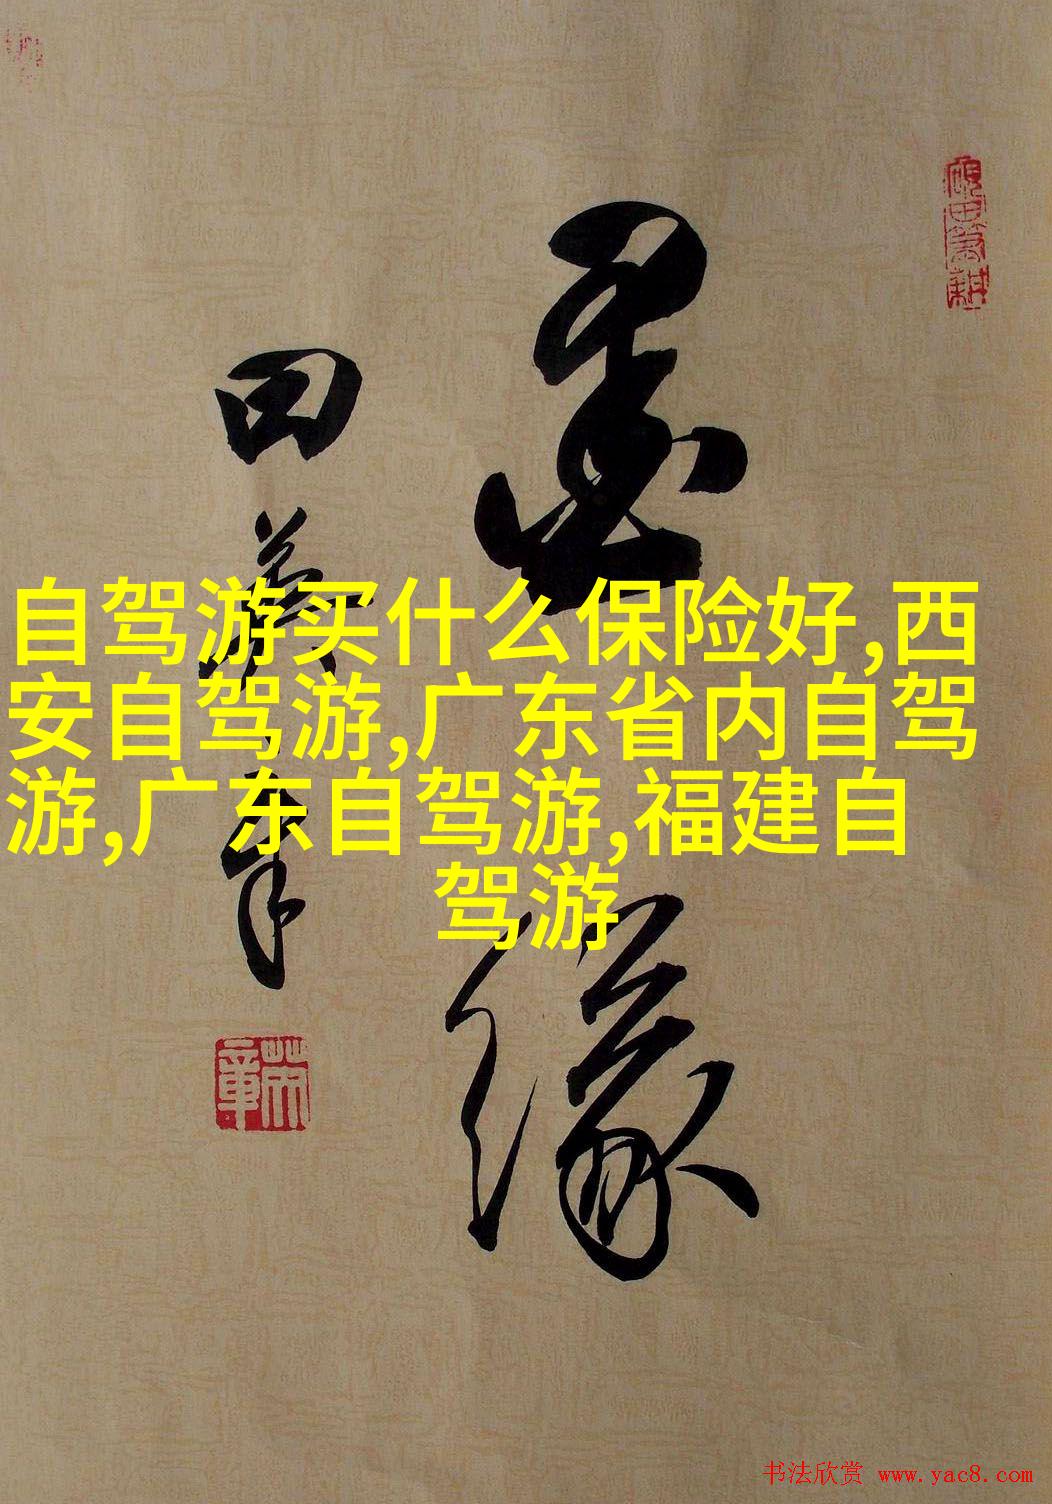 自驾游买什么保险好,西
安自驾游,广东省内自驾
游,广东自驾游,福建自
驾游
墨缘
书法欣赏 www.yac8.com